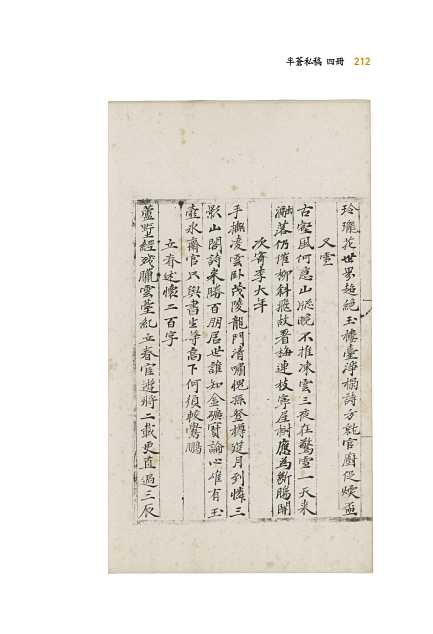 半蒼私稿 四冊 212
玲瓏花世界趂絶玉樓臺淨榻詩方就官廚促煖盃
又雪
古壑風何急山牕晩不推凍雲三夜在驚雪一天來
落仍催柳斜飛故看梅連枝寧屋樹應爲斷腸開
次寄李大年
手撫凌雲臥茂陵龍門清嘯愧孫登樽遲月到憐三
影山閣詩來勝百朋居世誰知金礦寶論心唯有玉
壺氷齋官只與書生等高下何須較鷽鵬
立春述懷二百字
蘆墅經殘臘雲臺紅立春宦遊將二載更直過三辰